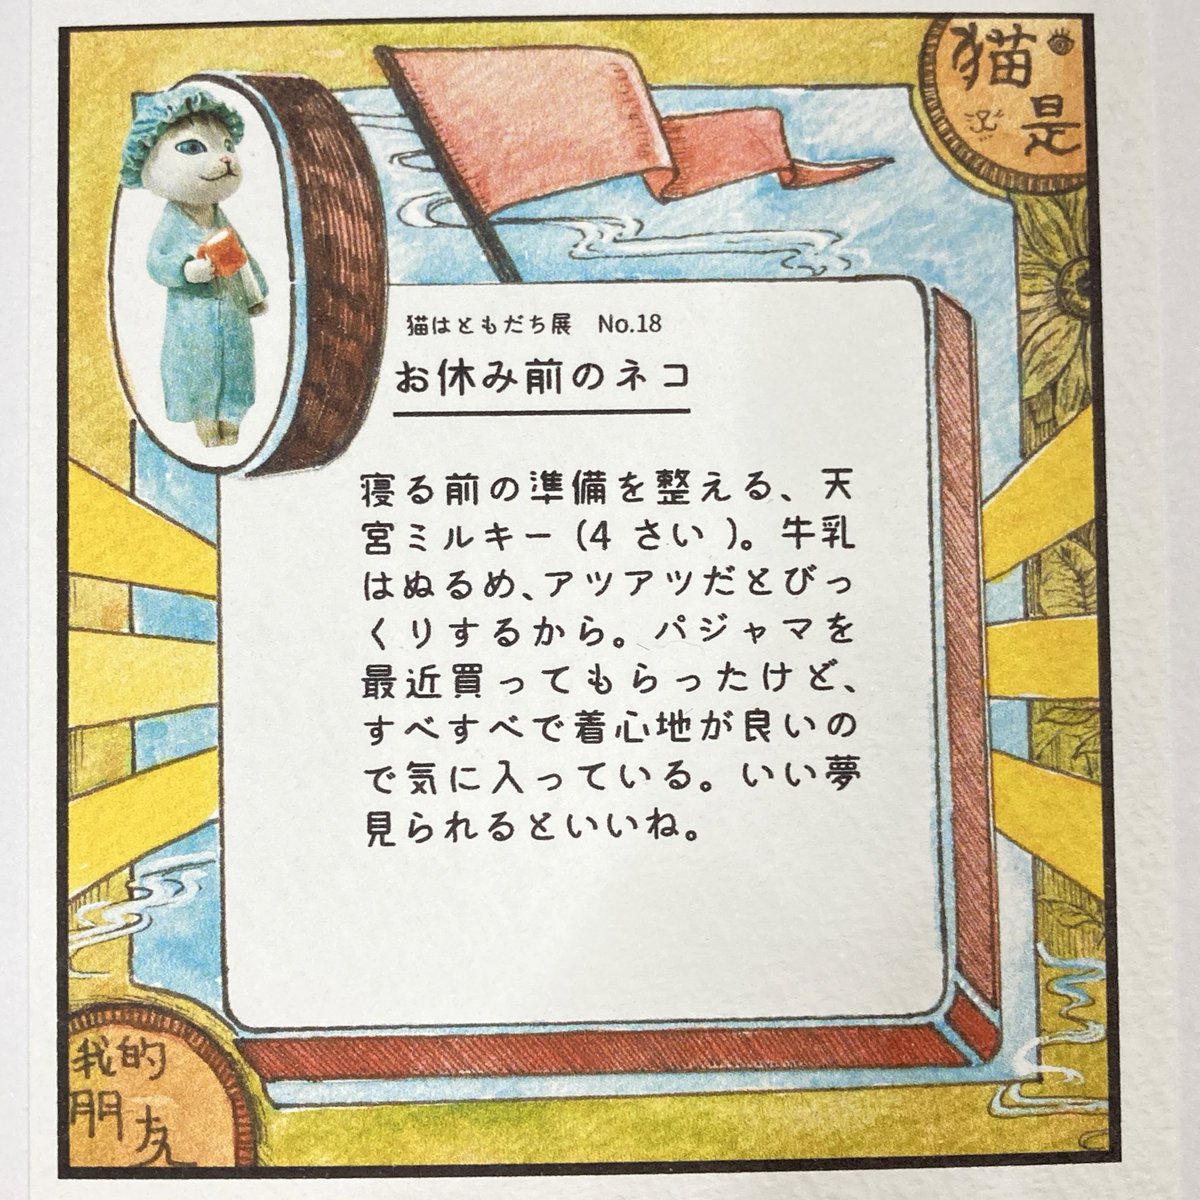 猫
是
猫はともだち展　No.18
お休み前のネコ
寝る前の準備を整える、天
宮ミルキー(4 さい )。牛乳
はぬるめ、アツアツだとびっ
くりするから。パジャマを
最近買ってもらったけど、
すべすべで着心地が良いの
で気に入っている。いい夢
見られるといいね。
我的
朋友